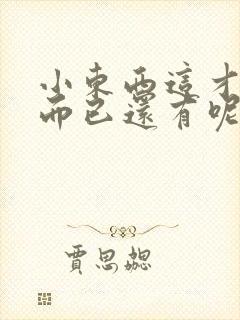 小東西這才
而已還有呢
賈思勰